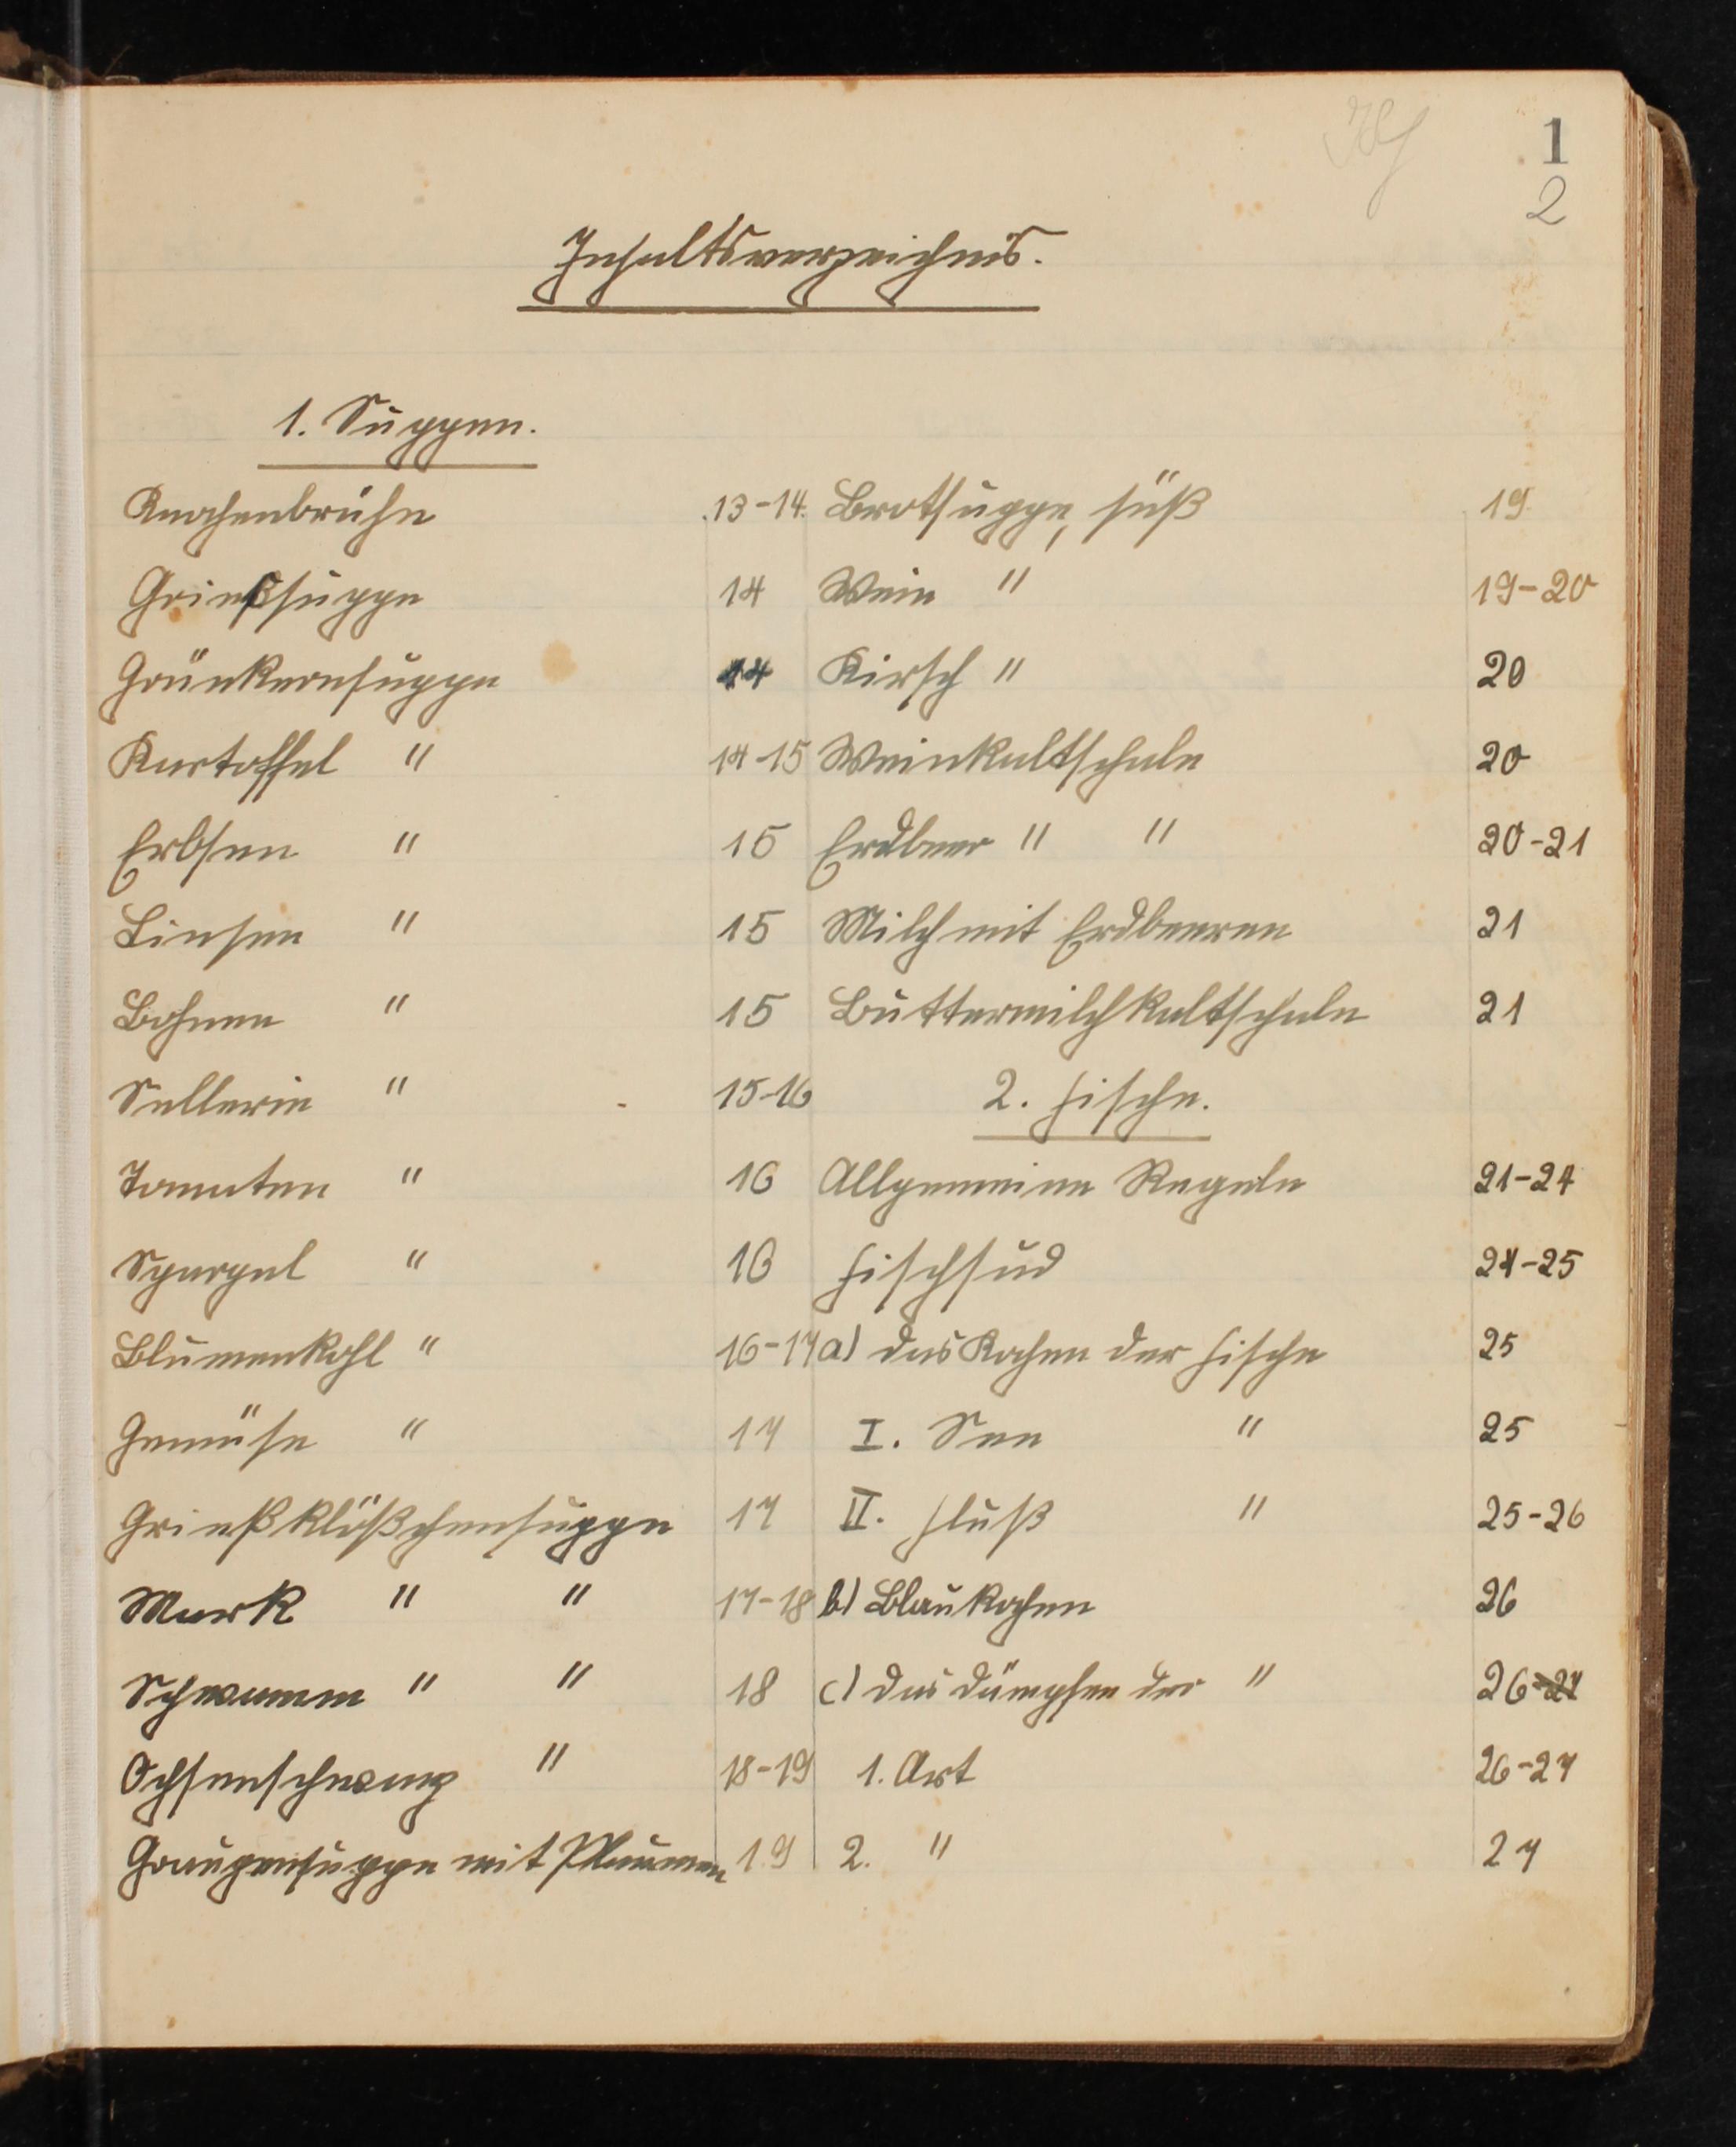 1
2
Inhaltsverzeichnis.
1. Suppen.
Knochenbrühe 13-14.
Grießsuppe 14
Grünkernsuppe 14
Kartoffel " 14-15
Erbsen " 15
Linsen " 15
Bohnen " 15
Sellerie " 15-16
Tomaten " 16
Spargel " 16
Blumenkohl " 16-17
Gemüse " 17
Grießklößchensuppe 17
Mark " " 17-18
Schwamm " " 18
Ochsenschwanz " 18-19
Graupensuppe mit Pflaumen 19
Brotsuppe, süß 19
Wein " 19-20
Kirsch " 20
Weinkaltschale 20
Erdbeer " " 20-21
Milch mit Erdbeeren 21
Buttermilchkaltschale 21
2. Fische.
Allgemeine Regeln 21-24
Fischsud 24-25
a) das Kochen der Fische 25
I. See " 25
II. Fluß " 25-26
b) Blaukochen 26
c) das Dämpfen der " 26-27
1. Art 26-27
2. " 27